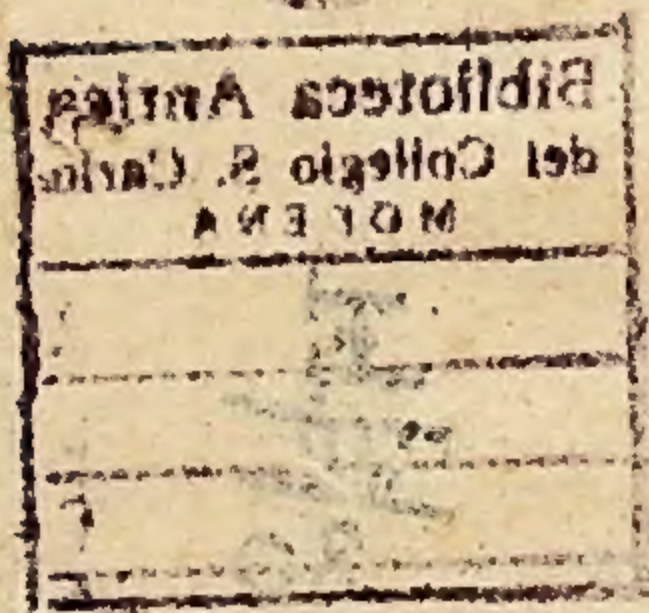 Biblioteca Antica
del Collegio S. Carlo
MODENA